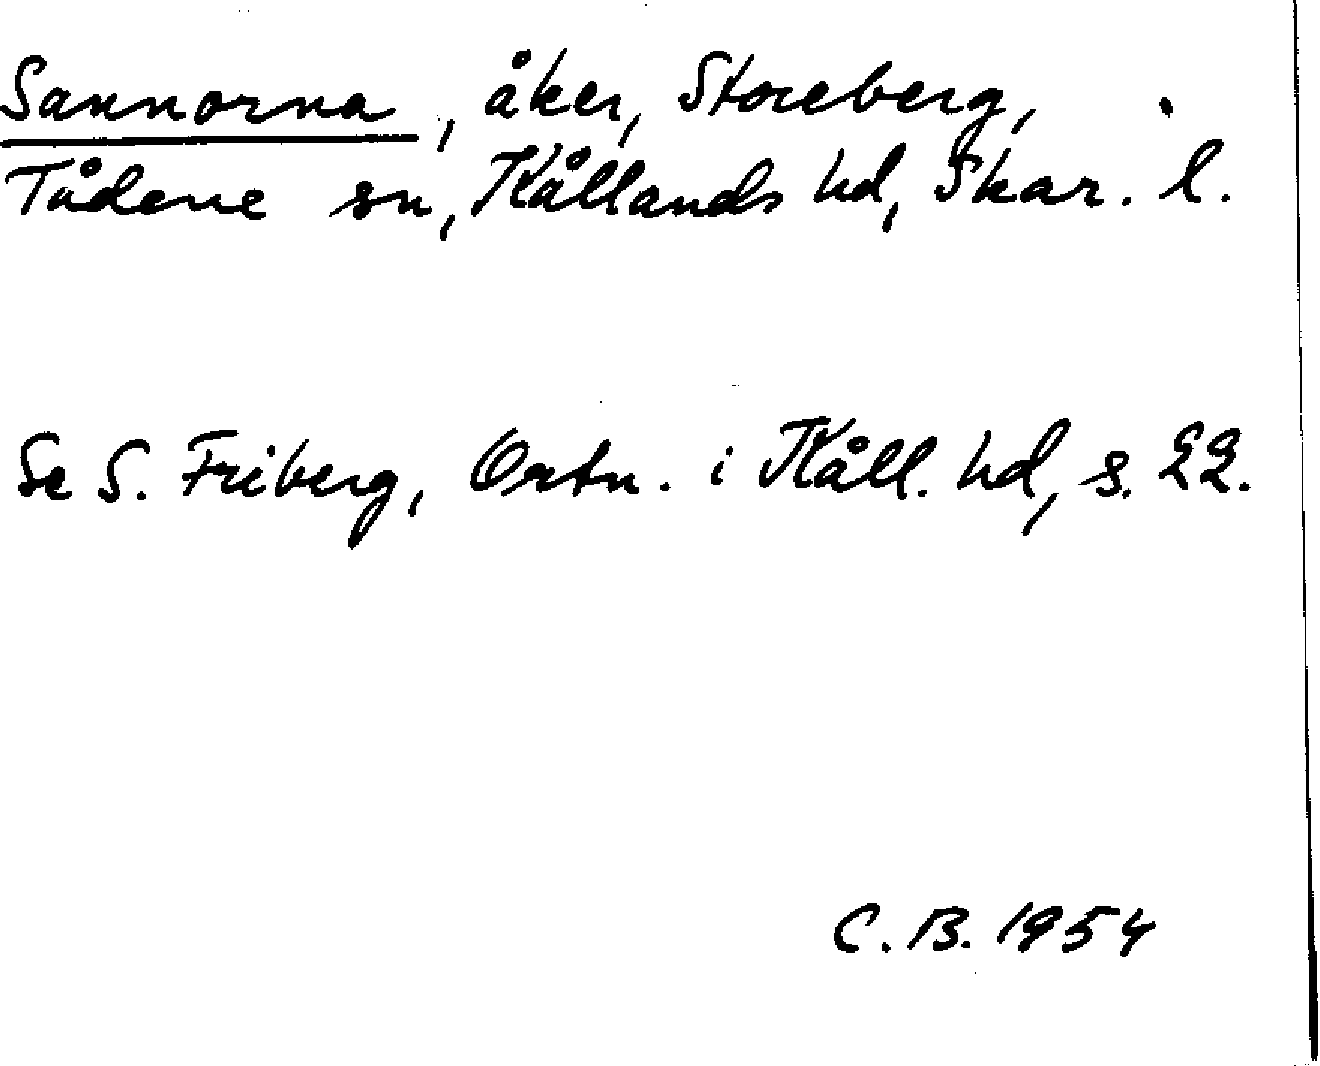 Sannorna, åker, Storeberg,
Tådene sn, Kållands hd, Skar. l.
Se S. Friberg, Ortn. i Kåll. hd, s. 22.
C. B. 1954